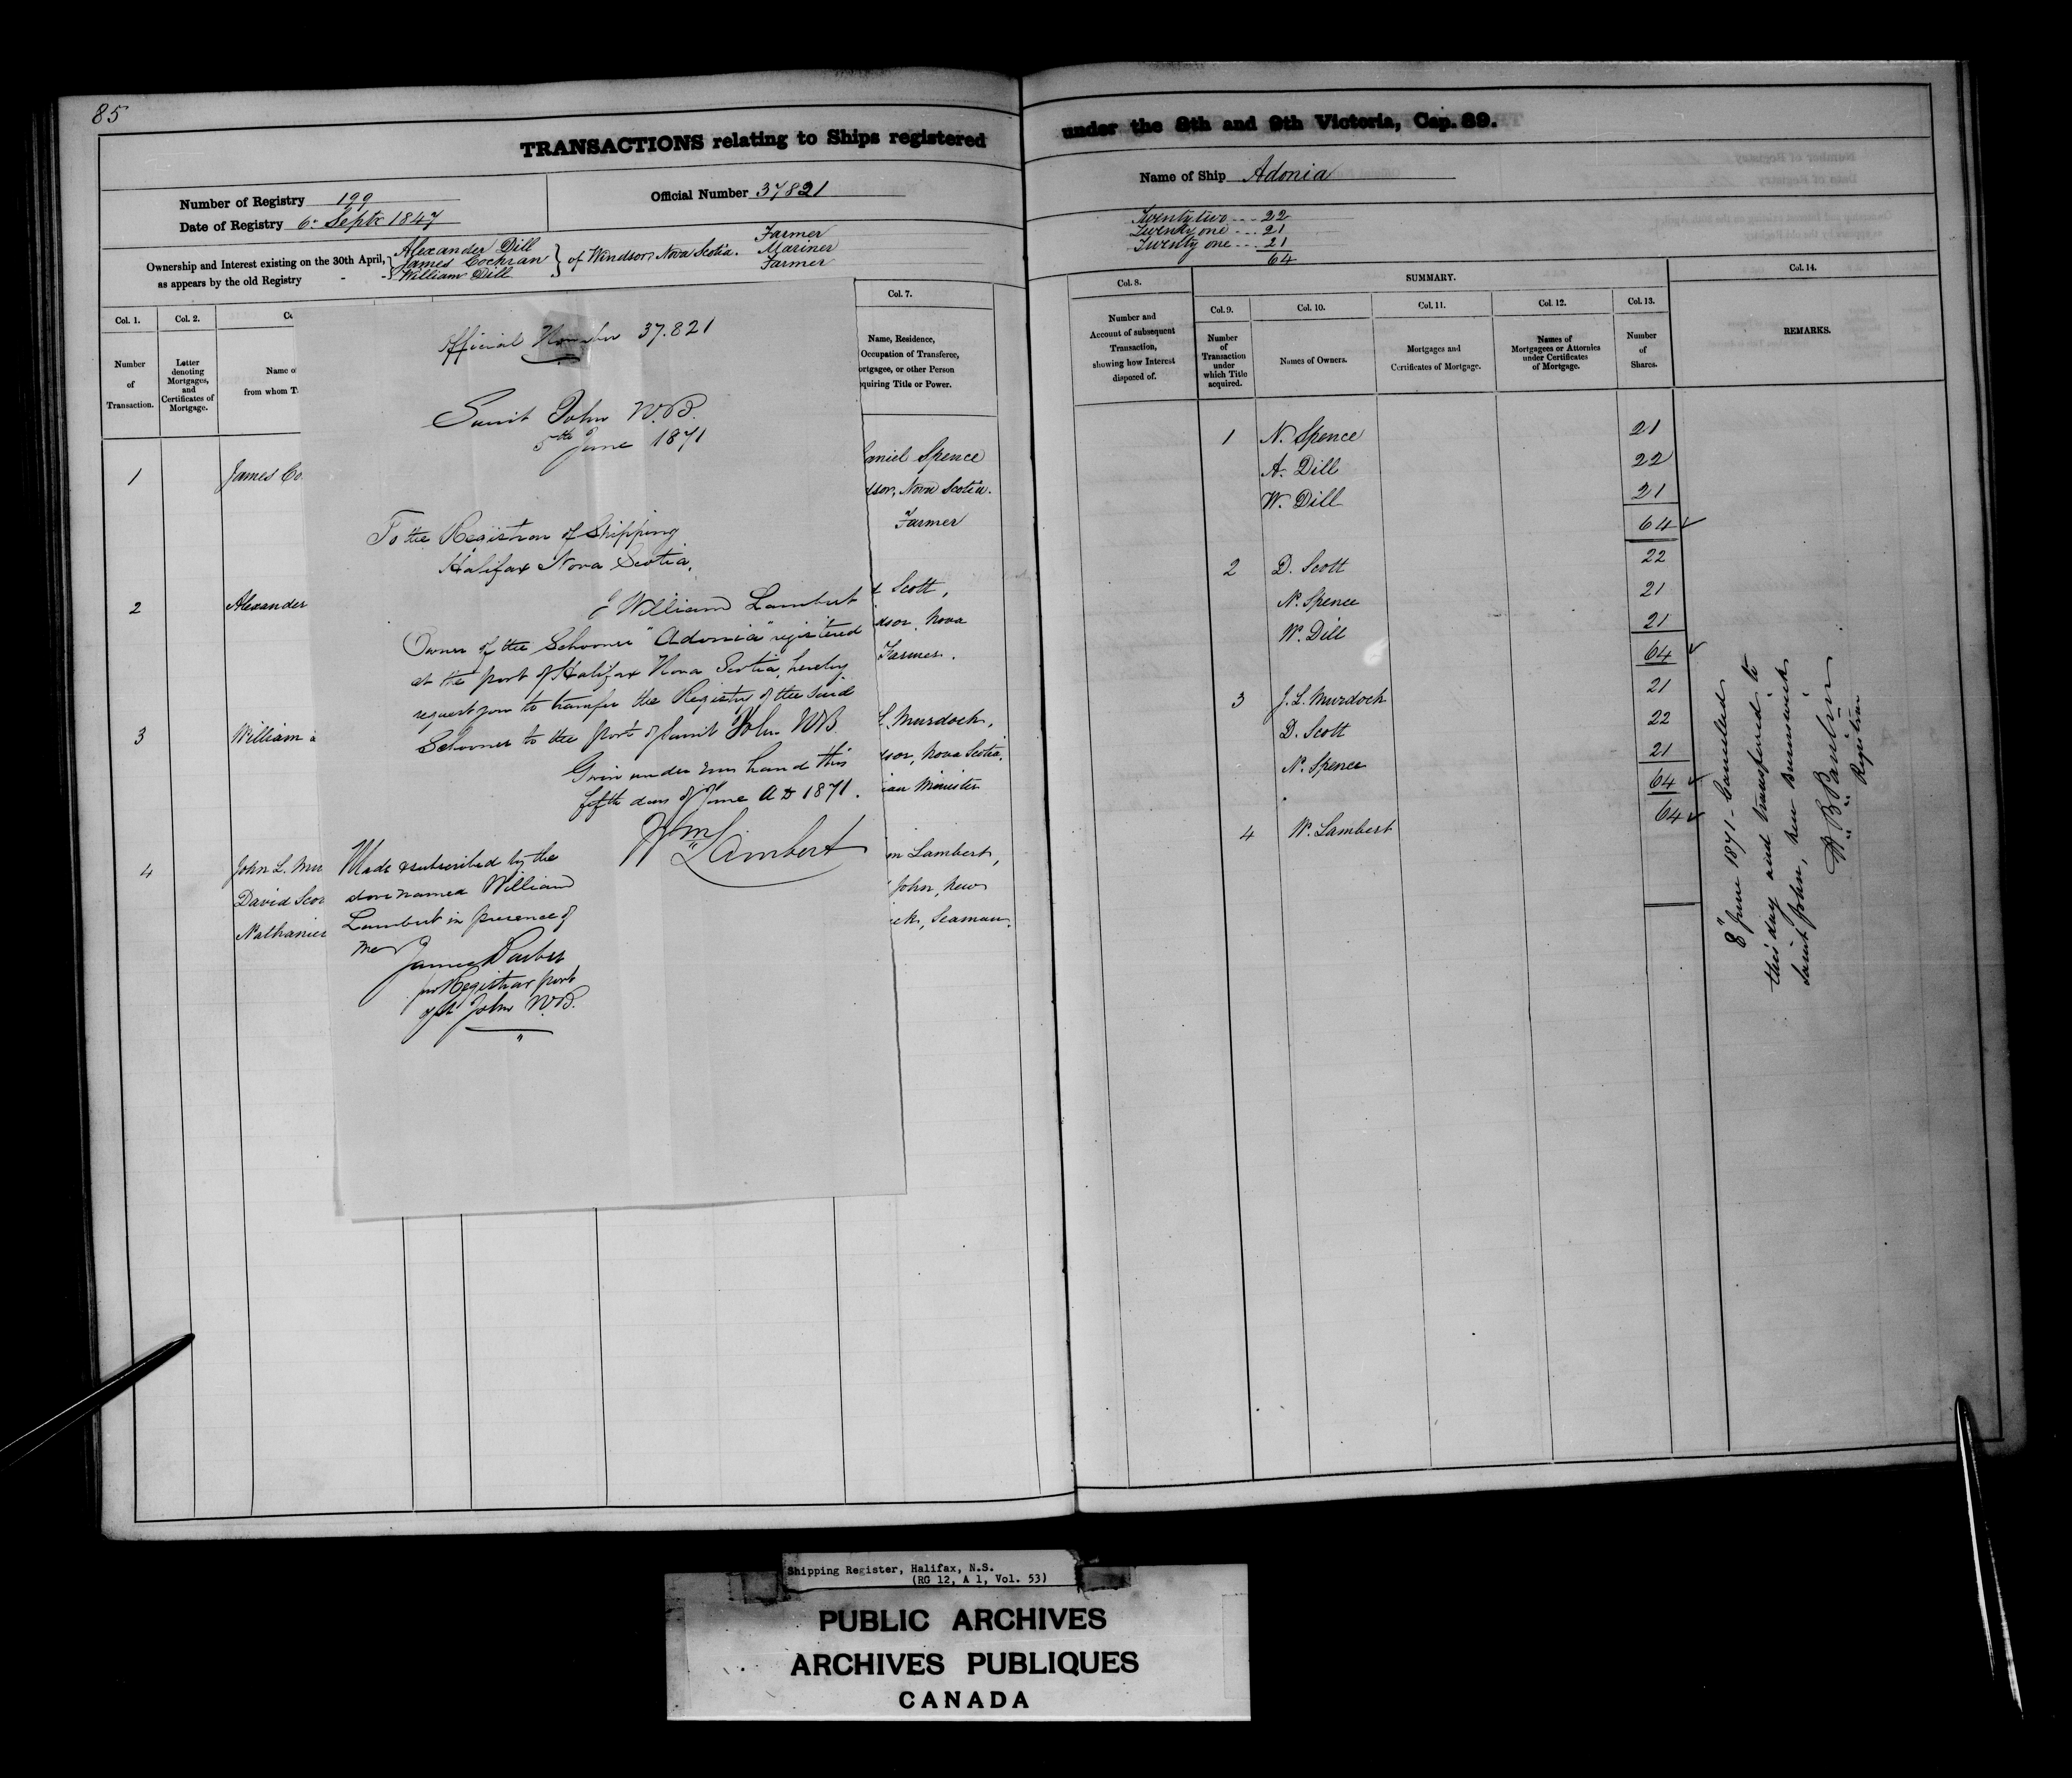 85
TRANSACTIONS relating to Ships registered under the 8th and 9th Victoria, Cap. 89.
Number of Registry 199
Official Number 37821
Name of Ship Adonia
Date of Registry 6th Septr 1847
Ownership and Interest existing on the 30th April,
as appears by the old Registry
Alexander Dill
James Cochran
William Dill
of Windsor, Nova Scotia.
Farmer
Mariner
Farmer
Twenty two --- 22
Twenty one --- 21
Twenty one --- 21
64
Col. 1.
Number
of
Transaction.
Col. 2.
Letter
denoting
Mortgages,
and
Certificates of
Mortgage.
Co
Name o
from whom T
Col. 7.
Name, Residence,
Occupation of Transferee,
ortgagee, or other Person
quiring Title or Power.
1
James Co
aniel Spence
dsor, Nova Scotia.
Farmer
2
Alexander
d Scott,
dsor, Nova
Farmer.
3
William
L. Murdoch,
sor, Nova Scotia,
ian Minister
4
John L. Mur
David Scot
Nathaniel
m Lambert,
John, New
ick, Seaman.
Official Number 37.821
Saint John N.B.
5th June 1871
To the Registrar of Shipping
Halifax Nova Scotia,
I William Lambert
Owner of the Schooner "Adonia" registered
at the port of Halifax Nova Scotia, hereby
request you to transfer the Registry of the said
Schooner to the port of Saint John NB.
Given under my hand this
fifth day of June AD 1871.
Wm Lambert
Made & subscribed by the
above named William
Lambert in presence of
me
James
for Registrar port
of St John N.B.
Col. 8.
Number and
Account of subsequent
Transaction,
showing how Interest
disposed of.
SUMMARY.
Col. 9.
Number
of
Transaction
under
which Title
acquired.
Col. 10.
Names of Owners.
Col. 11.
Mortgages and
Certificates of Mortgage.
Col. 12.
Names of
Mortgagees or Attornies
under Certificates
of Mortgage.
Col. 13.
Number
of
Shares.
Col. 14.
REMARKS.
1 N. Spence 21
A. Dill 22
W. Dill 21
64
2 D. Scott 22
N. Spence 21
W. Dill 21
64
3 J. L. Murdoch 21
D. Scott 22
N. Spence 21
64
4 W. Lambert 64
8" June 1871 - Cancelled
this day and transferred to
Saint John, New Brunswick
Registrar
Shipping Register, Halifax, N.S.
(RG 12, A 1, Vol. 53)
PUBLIC ARCHIVES
ARCHIVES PUBLIQUES
CANADA